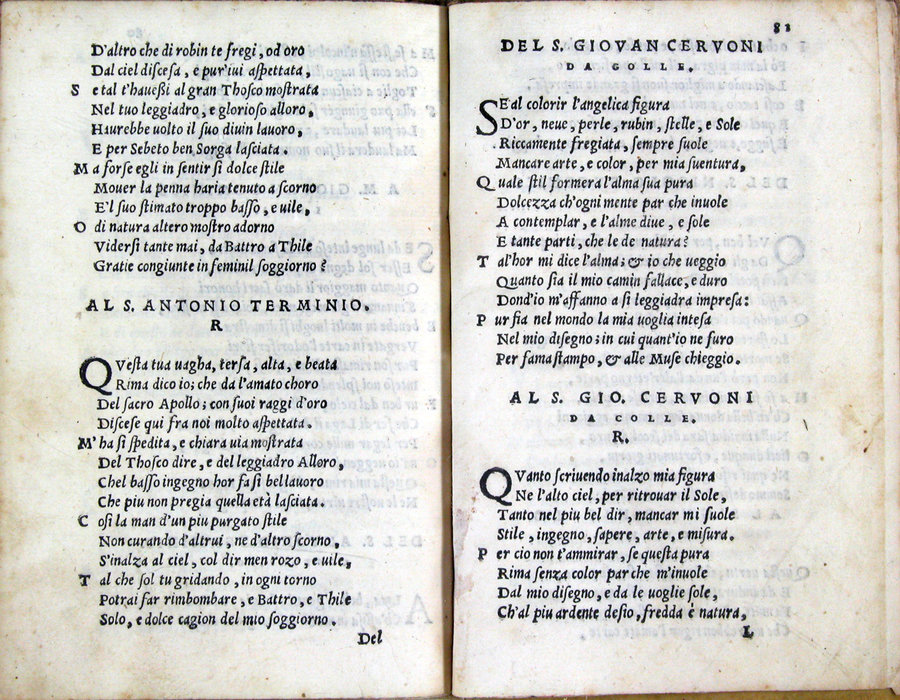 D'altro che di robin te fregi, od oro
Dal ciel discesa, e pur'iui aspettata,
S e tal t'hauessi al gran Thosco mostrata
Nel tuo leggiadro, e glorioso alloro,
Haurebbe uolto il suo diuin lauoro,
E per Sebeto ben Sorga lasciata.
M a forse egli in sentir si dolce stile
Mouer la penna haria tenuto a scorno
E'l suo stimato troppo basso, e uile,
O di natura altero mostro adorno
Vidersi tante mai, da Battro a Thile
Gratie congiunte in feminil soggiorno?
AL S. ANTONIO TERMINIO.
R
QVesta tua uagha, tersa, alta, e beata
Rima dico io; che da l'amato choro
Del sacro Apollo; con suoi raggi d'oro
Discese qui fra noi molto aspettata.
M' ha si spedita, e chiara uia mostrata
Del Thosco dire, e del leggiadro Alloro,
Chel basso ingegno hor fa si bel lauoro
Che piu non pregia quella età lasciata.
C osi la man d'un piu purgato stile
Non curando d'altrui, ne d'altro scorno,
S'inalza al ciel, col dir men rozo, e uile,
T al che sol tu gridando, in ogni torno
Potrai far rimbombare, e Battro, e Thile
Solo, e dolce cagion del mio soggiorno.
Del
81
DEL S. GIOVAN CERVONI
DA COLLE.
SE al colorir l'angelica figura
D'or, neue, perle, rubin, stelle, e Sole
Riccamente fregiata, sempre suole
Mancare arte, e color, per mia suentura,
Q uale stil formera l'alma sua pura
Dolcezza ch'ogni mente par che inuole
A contemplar, e l'alme diue, e sole
E tante parti, che le de natura?
T al'hor mi dice l'alma; & io che ueggio
Quanto sia il mio camin fallace, e duro
Dond'io m'affanno a si leggiadra impresa:
P ur sia nel mondo la mia uoglia intesa
Nel mio disegno; in cui quant'io ne furo
Per fama stampo, & alle Muse chieggio.
AL S. GIO. CERVONI
DA COLLE.
R.
QVanto scriuendo inalzo mia figura
Ne l'alto ciel, per ritrouar il Sole,
Tanto nel piu bel dir, mancar mi suole
Stile, ingegno, sapere, arte, e misura.
P er cio non t'ammirar, se questa pura
Rima senza color par che m'inuole
Dal mio disegno, e da le uoglie sole,
Ch'al piu ardente desio, fredda è natura,
L